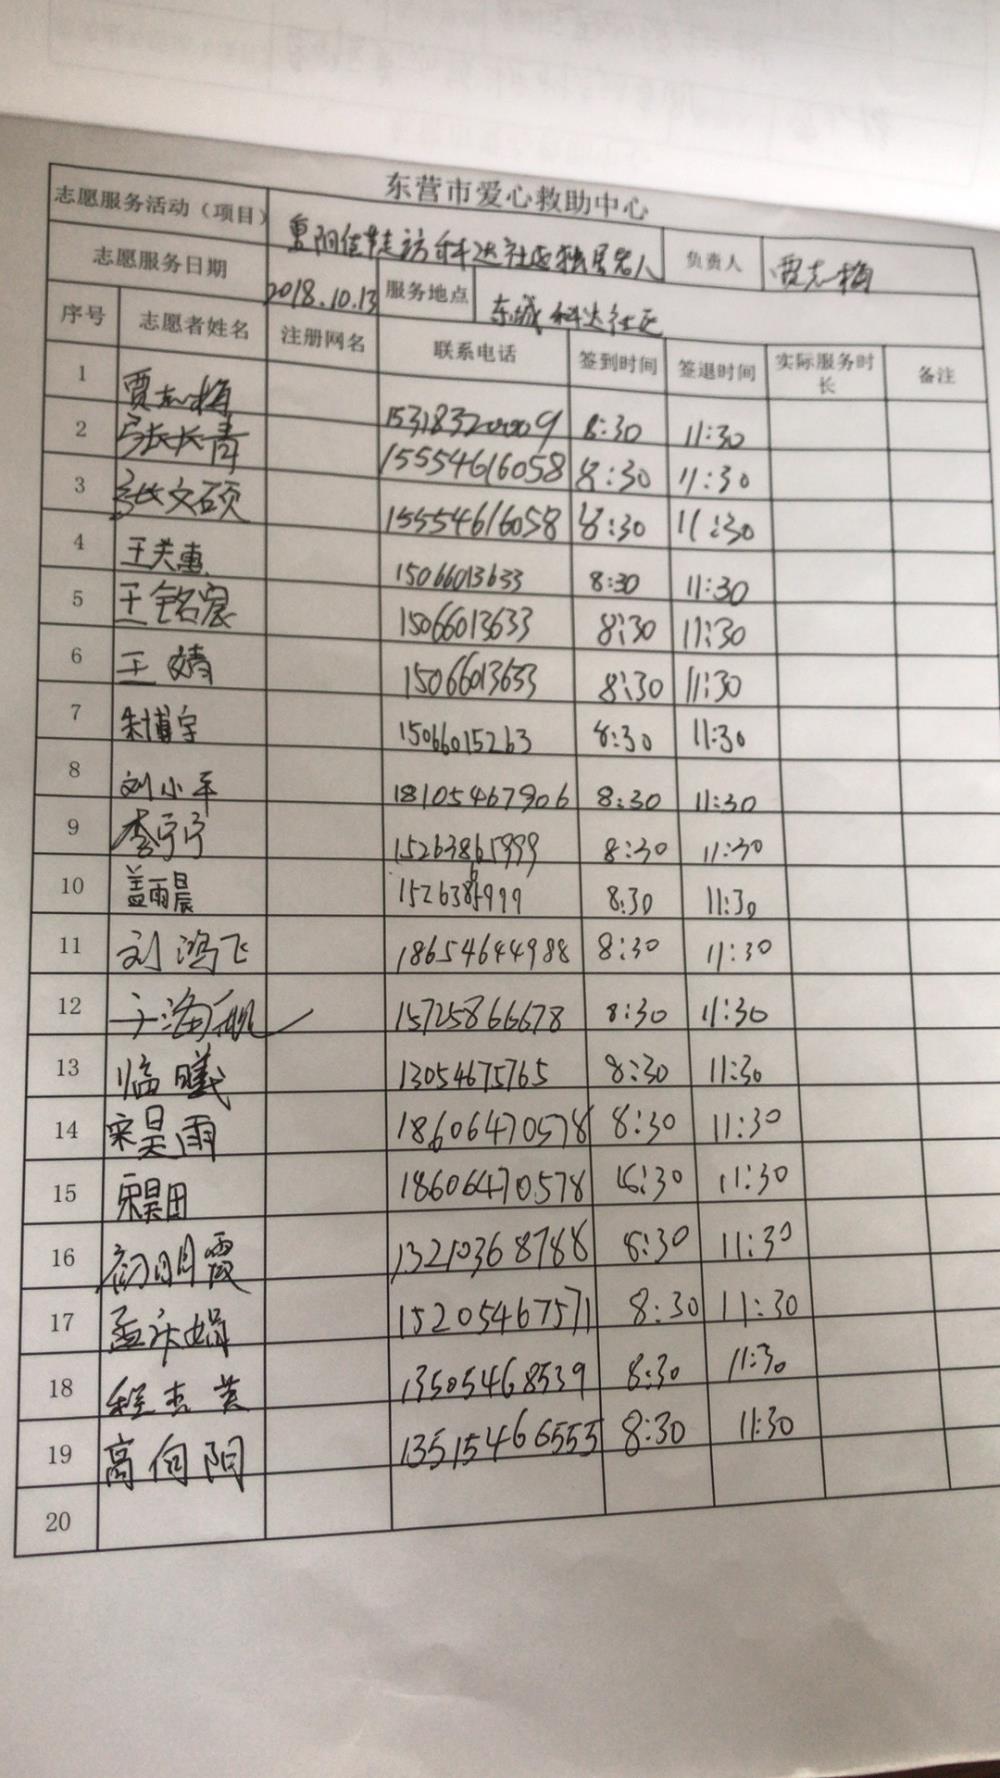 东营市爱心救助中心
志愿服务活动（项目） 重阳佳节走访科达社区独居老人 负责人 贾志梅
志愿服务日期 2018.10.13 服务地点 东城科达社区
序号 志愿者姓名 注册网名 联系电话 签到时间 签退时间 实际服务时长 备注
1 贾志梅 15318320009 8:30 11:30
2 张长青 15554616058 8:30 11:30
3 张文硕 15554616058 8:30 11:30
4 王关惠 15066013633 8:30 11:30
5 王铭宸 15066013633 8:30 11:30
6 王婧 15066013633 8:30 11:30
7 朱博宇 15066015263 8:30 11:30
8 刘小平 18105467906 8:30 11:30
9 李宁宁 15263865999 8:30 11:30
10 盖雨晨 15263865999 8:30 11:30
11 刘鸿飞 18654644988 8:30 11:30
12 于海帆 15725866678 8:30 11:30
13 临曦 13054675765 8:30 11:30
14 宋昊雨 18606470578 8:30 11:30
15 宋昊田 18606470578 8:30 11:30
16 初明霞 13210368788 8:30 11:30
17 孟庆娟 15205467571 8:30 11:30
18 程杰英 13505468539 8:30 11:30
19 高向阳 13515466553 8:30 11:30
20